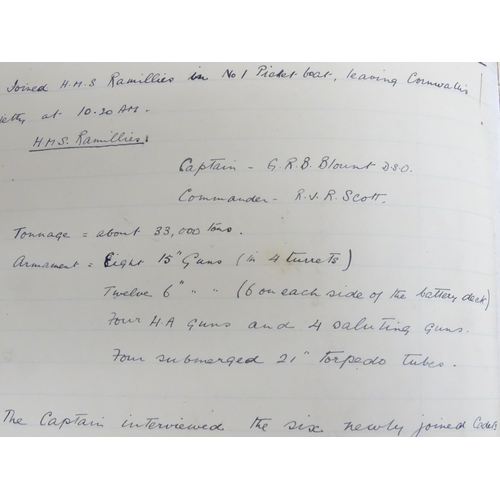 Joined H.M.S Ramillies in No 1 Picket boat, leaving Cornwallis
at 10.20 AM.
H.M.S. Ramillies:
Captain - G.R.B. Blount D.S.O.
Commander - R.J.R. Scott.
Tonnage = about 33,000 tons.
Armament = Eight 15" Guns (in 4 turrets)
Twelve 6" " " (6 on each side of the battery deck)
Four H.A Guns and 4 saluting guns.
Four submerged 21" torpedo tubes.
The Captain interviewed the six newly joined Cadets